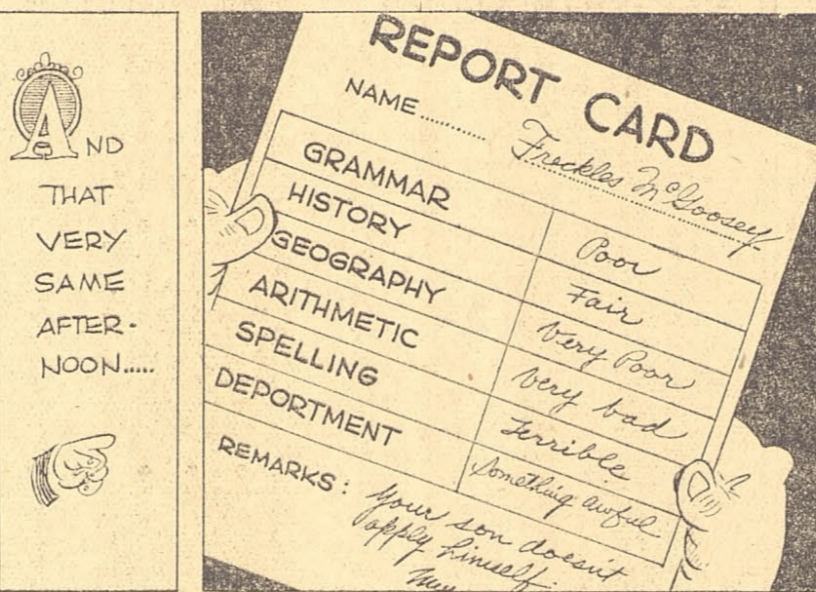 AND
THAT
VERY
SAME
AFTER-
NOON.....
REPORT CARD
NAME........ Freckles McGoosey
GRAMMAR Poor
HISTORY Fair
GEOGRAPHY Very Poor
ARITHMETIC Very bad
SPELLING Terrible
DEPORTMENT Something awful
REMARKS: Your son doesn't
apply himself.